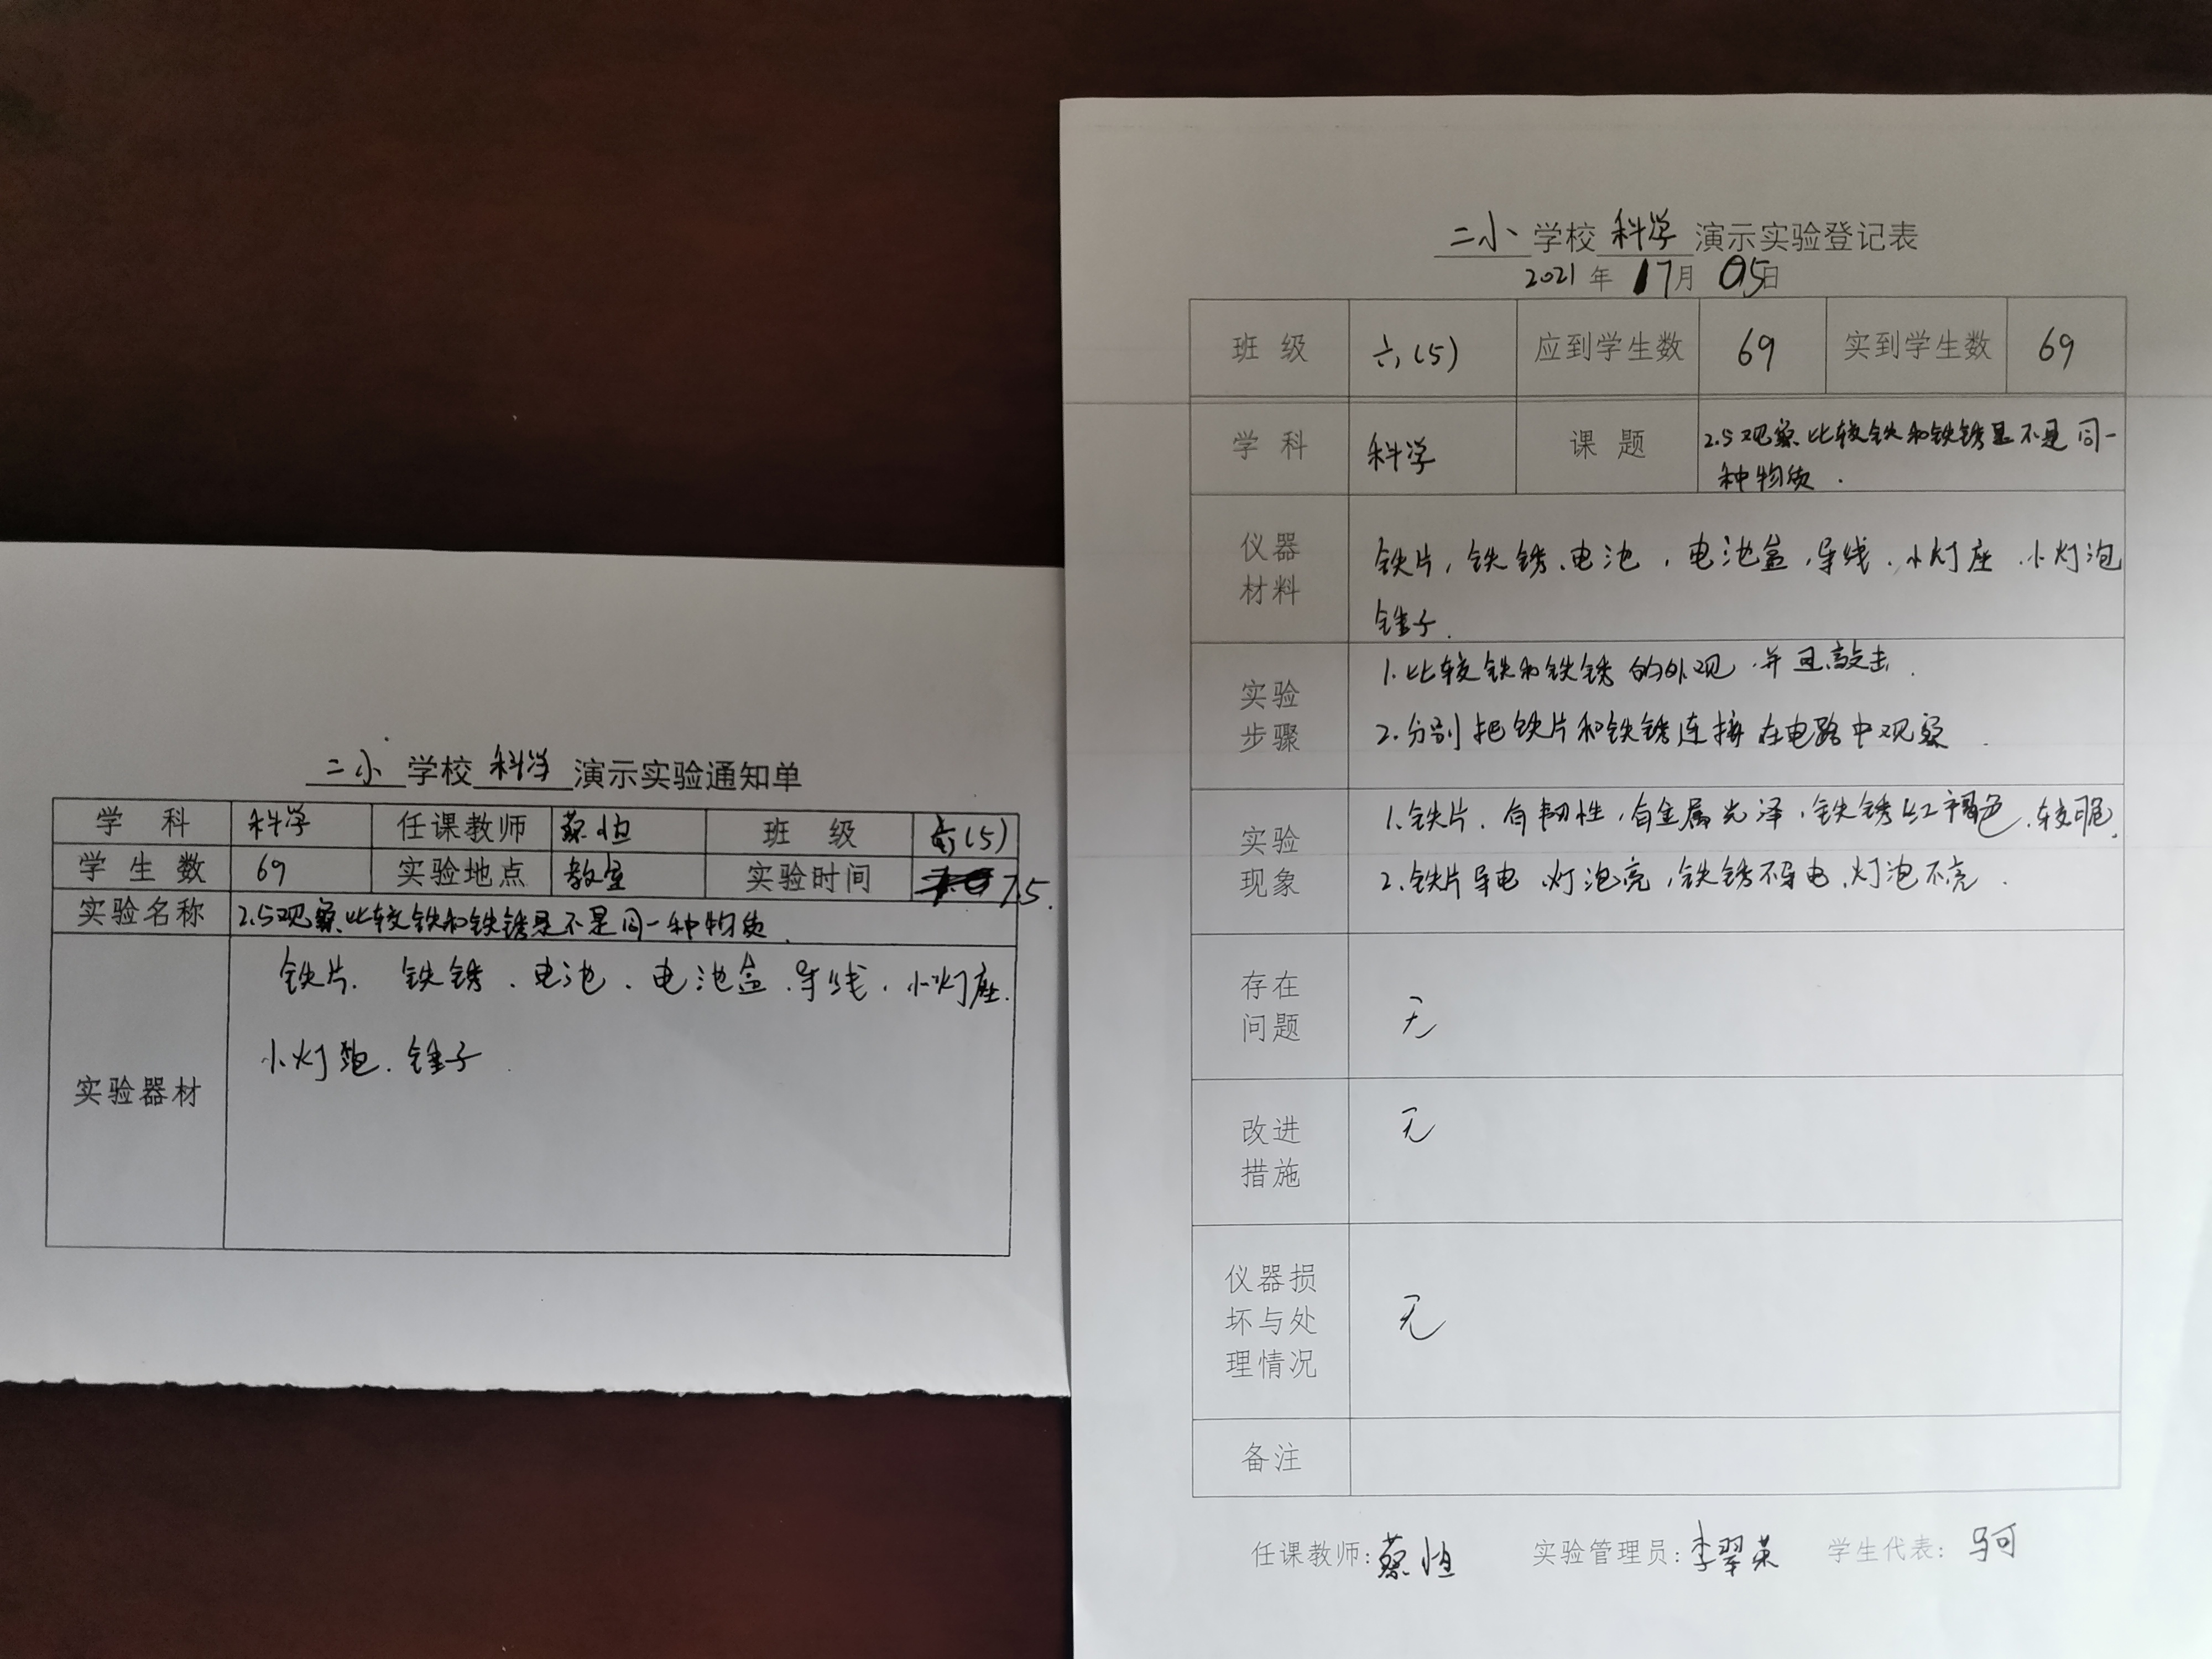 二小学校科学演示实验通知单
学科 科学 任课教师 蔡恒 班级 六(5)
学生数 69 实验地点 教室 实验时间 7.5.
实验名称 2.5观察比较铁和铁锈是不是同一种物质.
实验器材 铁片. 铁锈、电池、电池盒、导线、小灯座.
小灯泡、锤子
二小学校科学演示实验登记表
2021年 7月 05日
班级 六(5) 应到学生数 69 实到学生数 69
学科 科学 课题 2.5观察比较铁和铁锈是不是同一
种物质.
仪器
材料
铁片,铁锈、电池,电池盒,导线、小灯座、小灯泡
锤子.
实验
步骤
1.比较铁和铁锈的外观,并且敲击.
2.分别把铁片和铁锈连接在电路中观察
实验
现象
1.铁片、有韧性,有金属光泽,铁锈红褐色、较脆.
2.铁片导电、灯泡亮,铁锈不导电、灯泡不亮.
存在
问题
无
改进
措施
无
仪器损
坏与处
理情况
无
备注
任课教师:蔡恒 实验管理员:李翠英 学生代表: